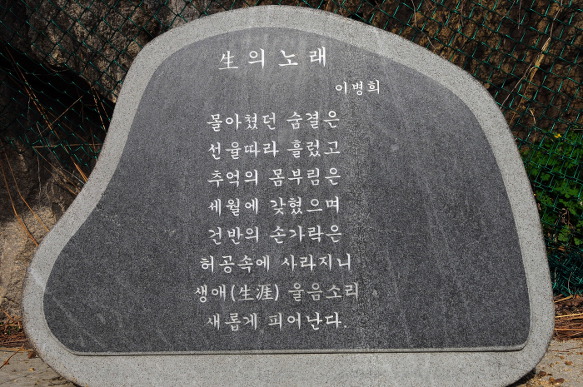 生의 노래
이병희
몰아쳤던 숨결은
선율따라 흘렀고
추억의 몸부림은
세월에 갖혔으며
건반의 손가락은
허공속에 사라지니
생애(生涯) 울음소리
새롭게 피어난다.